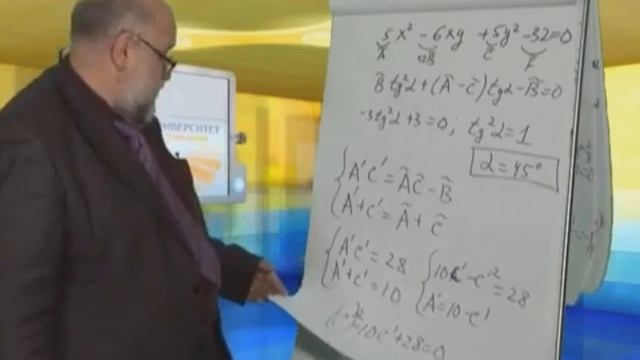 5x² - 6xy + 5y² - 32 = 0
A 2B C F
B̃tg²α + (Ã - C̃)tgα - B̃ = 0
-3tg²α + 3 = 0; tg²α = 1
α = 45°
{ A'C' = ÃC̃ - B̃
A' + C' = Ã + C̃
{ A'C' = 28
A' + C' = 10
{ 10C' - C'² = 28
A' = 10 - C'
10C' + 28 = 0